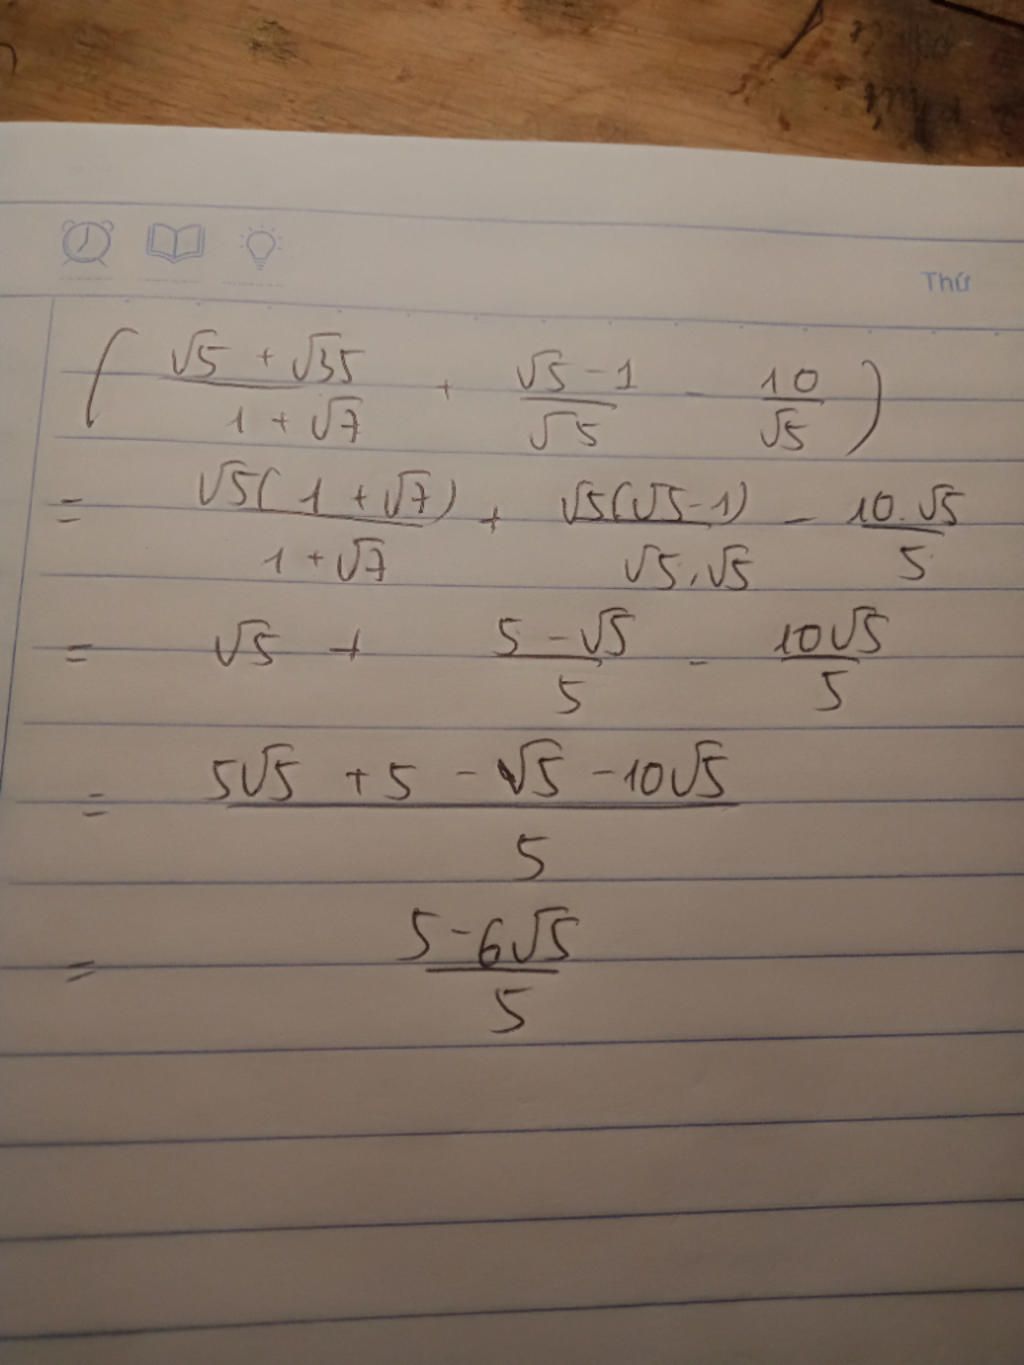 Thứ
( (√5 + √35)/(1 + √7) + (√5 - 1)/√5 - 10/√5 )
= √5(1 + √7)/(1 + √7) + √5(√5-1)/(√5.√5) - 10.√5/5
= √5 + (5 - √5)/5 - 10√5/5
= (5√5 + 5 - √5 - 10√5)/5
= (5 - 6√5)/5